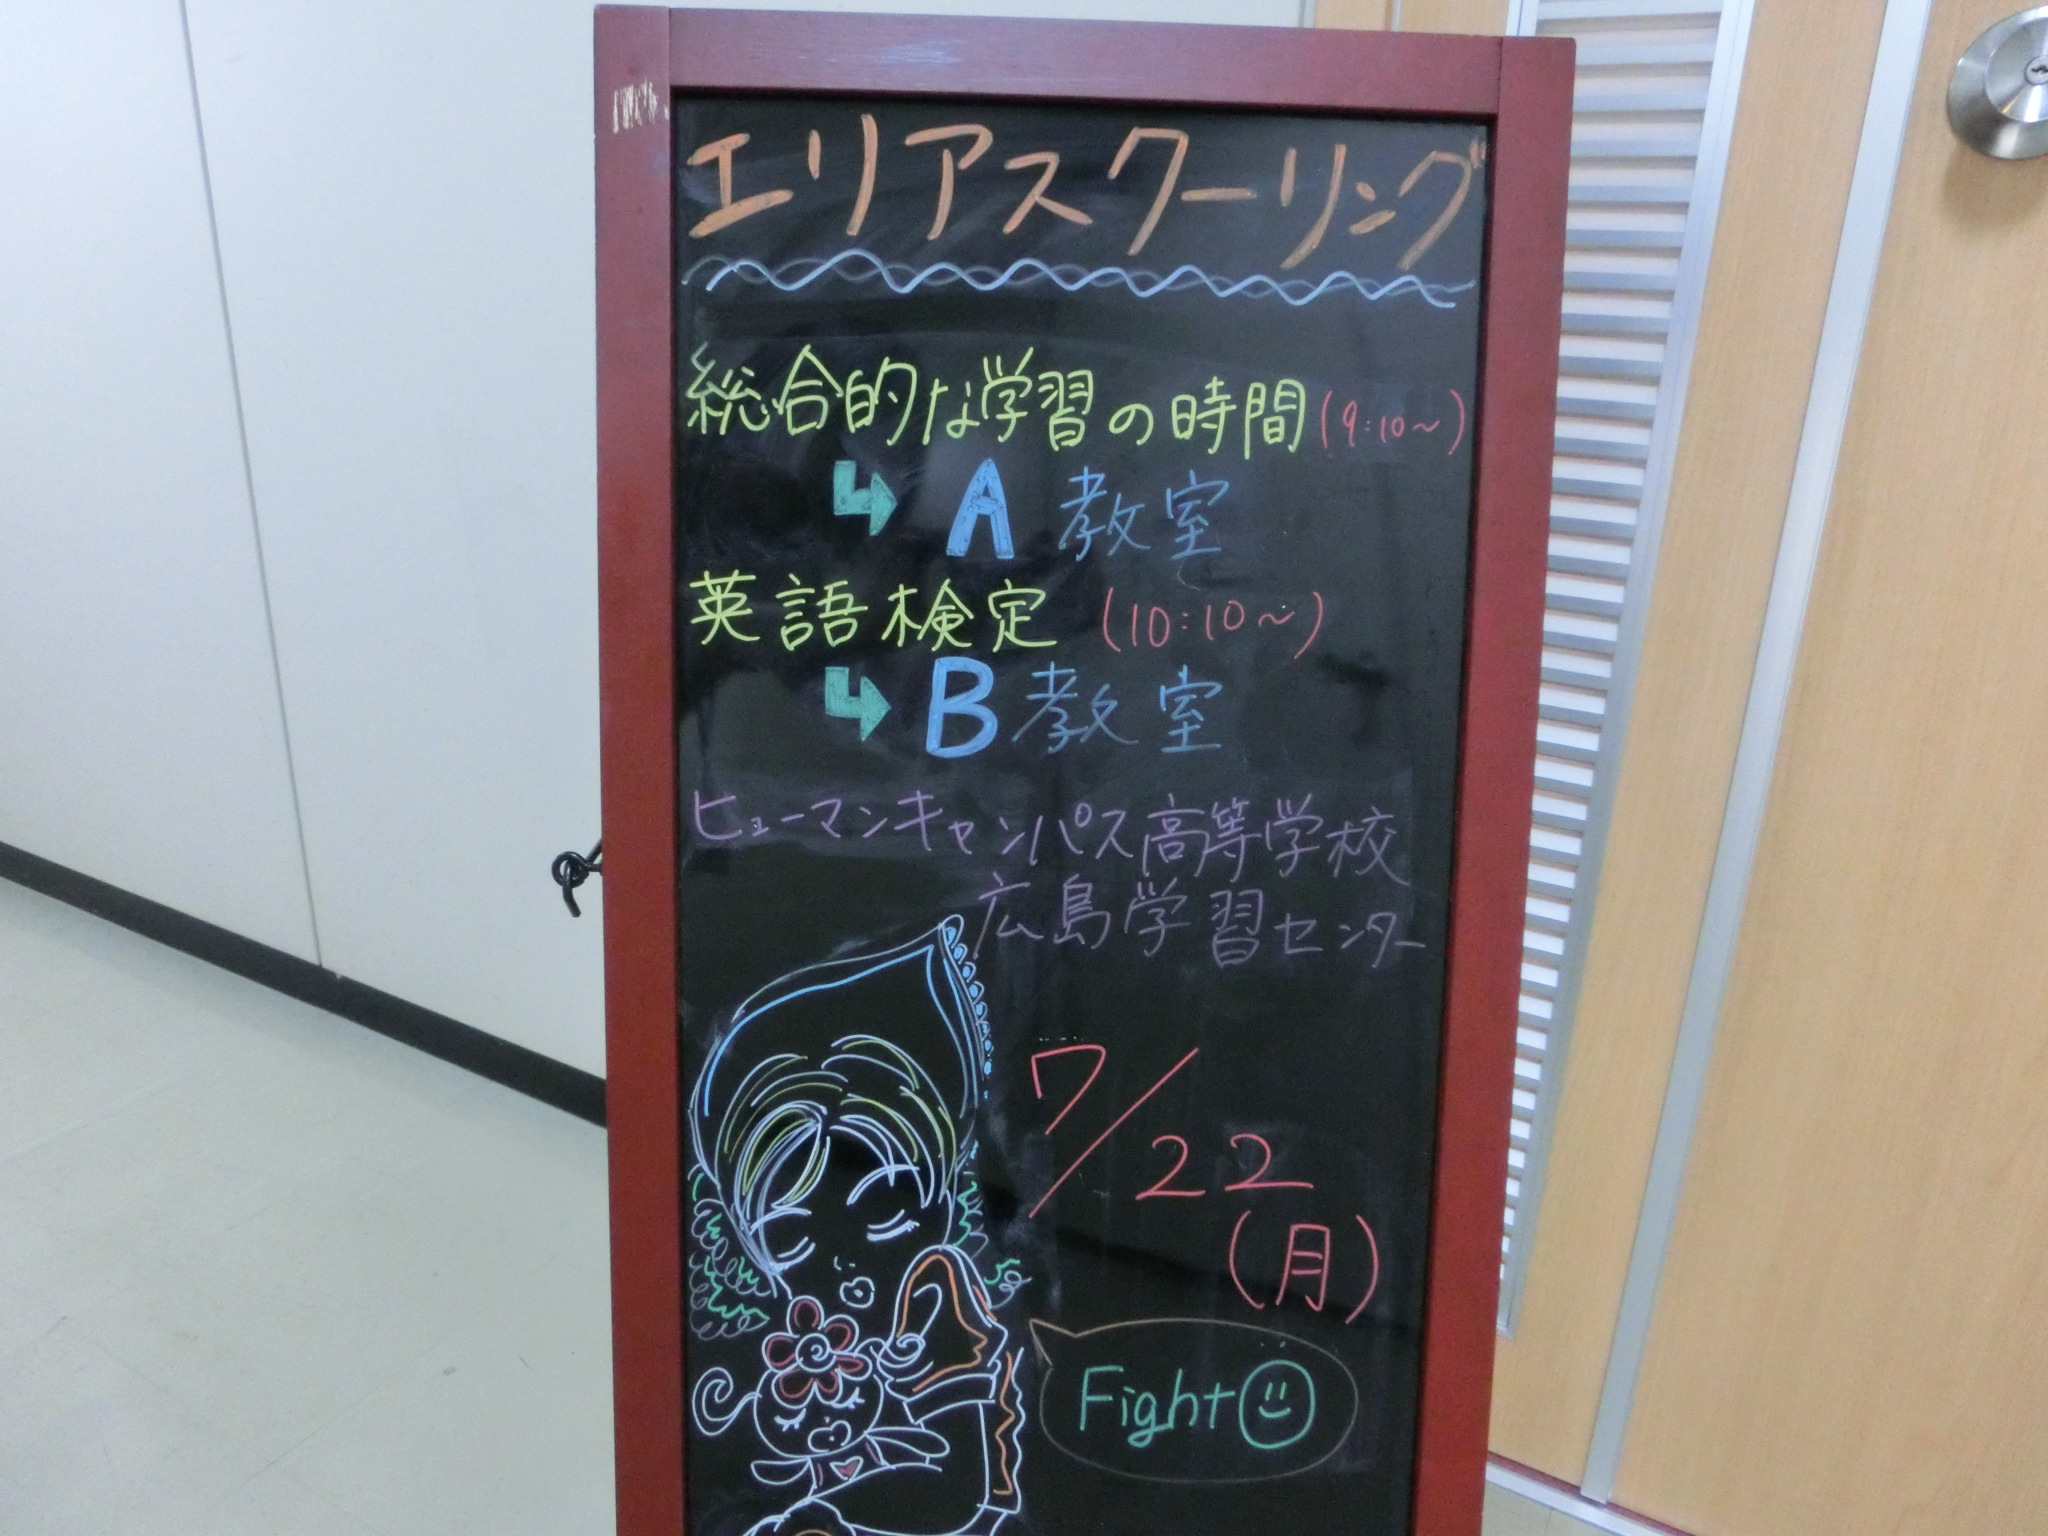 エリアスクーリング
総合的な学習の時間(9:10～)
A 教室
英語検定 (10:10～)
B 教室
ヒューマンキャンパス高等学校
広島学習センター
7/22
(月)
Fight